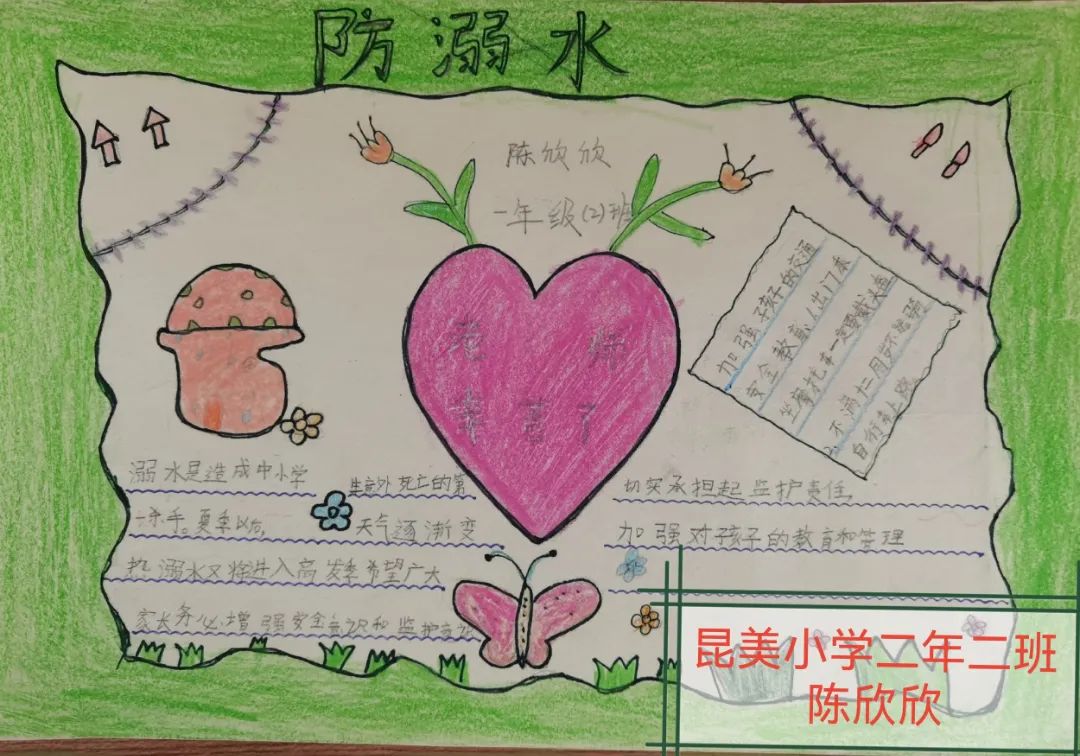 防溺水
陈欣欣
一年级(2)班
老师
辛苦了
加强孩子的交通
安全教育,1出门乘
坐摩托车一定要戴头盔
2.不满十二周岁不能骑
自行车上路
溺水是造成中小学
生意外死亡的第
一杀手。夏季以后,
天气逐渐变
热溺水又将进入高发季希望广大
家长务必增强安全意识和监护意识
切实承担起监护责任,
加强对孩子的教育和管理
昆美小学二年二班
陈欣欣